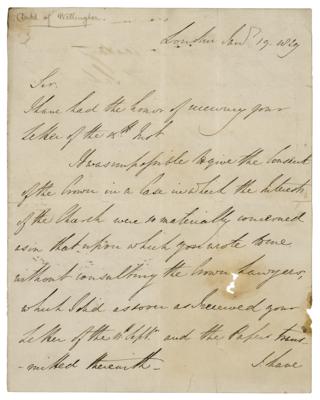 Duke of Wellington
London Jany. 19. 1829
Sir
I have had the honor of receiving your
Letter of the 18th Inst
It was impossible to give the Consent
of the Crown in a Case in which the Interests
of the Church were so materially concerned
as in that upon which you wrote to me
without consulting the Crown Lawyers,
which I did as soon as I received your
Letter of the Sept. and the Papers trans
-mitted therewith_
I have